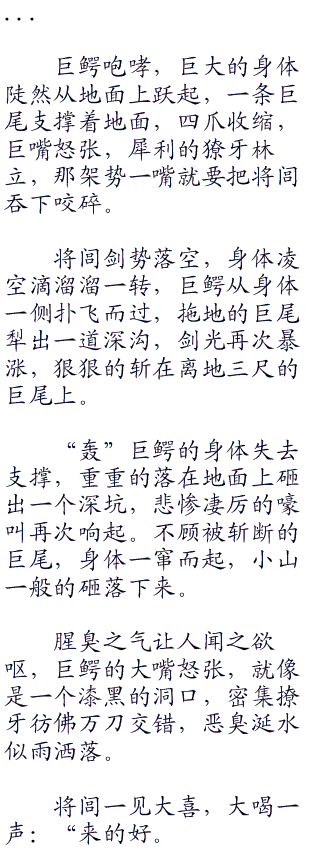 ...
巨鳄咆哮，巨大的身体
陡然从地面上跃起，一条巨
尾支撑着地面，四爪收缩，
巨嘴怒张，犀利的獠牙林
立，那架势一嘴就要把将闾
吞下咬碎。
将闾剑势落空，身体凌
空滴溜溜一转，巨鳄从身体
一侧扑飞而过，拖地的巨尾
犁出一道深沟，剑光再次暴
涨，狠狠的斩在离地三尺的
巨尾上。
“轰”巨鳄的身体失去
支撑，重重的落在地面上砸
出一个深坑，悲惨凄厉的嚎
叫再次响起。不顾被斩断的
巨尾，身体一窜而起，小山
一般的砸落下来。
腥臭之气让人闻之欲
呕，巨鳄的大嘴怒张，就像
是一个漆黑的洞口，密集撩
牙彷佛万刀交错，恶臭涎水
似雨洒落。
将闾一见大喜，大喝一
声：“来的好。